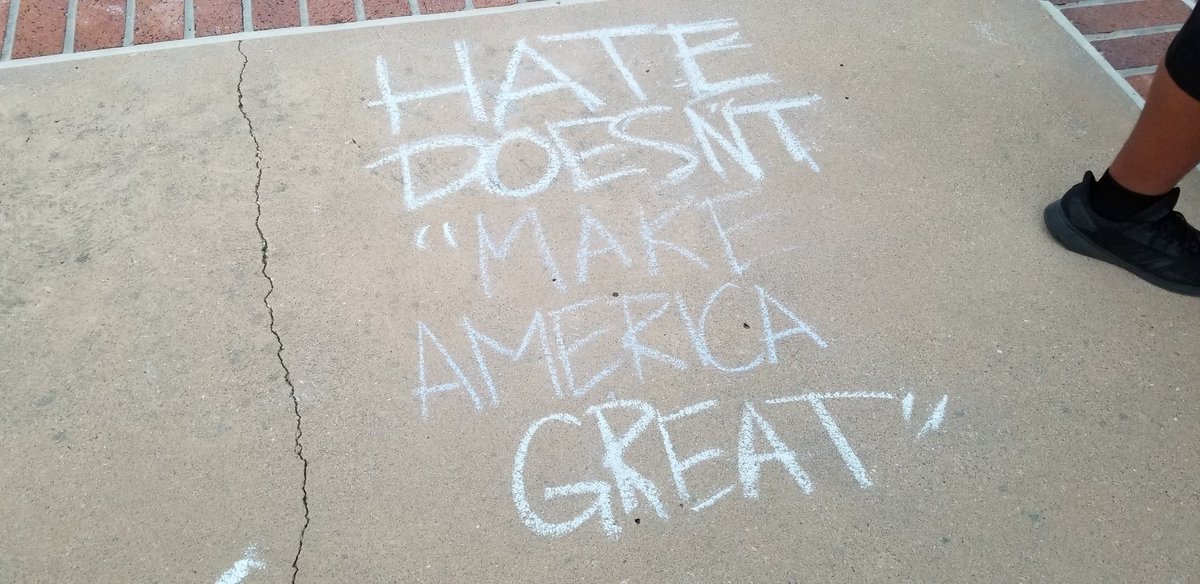 HATE
DOESN'T
"MAKE
AMERICA
GREAT"